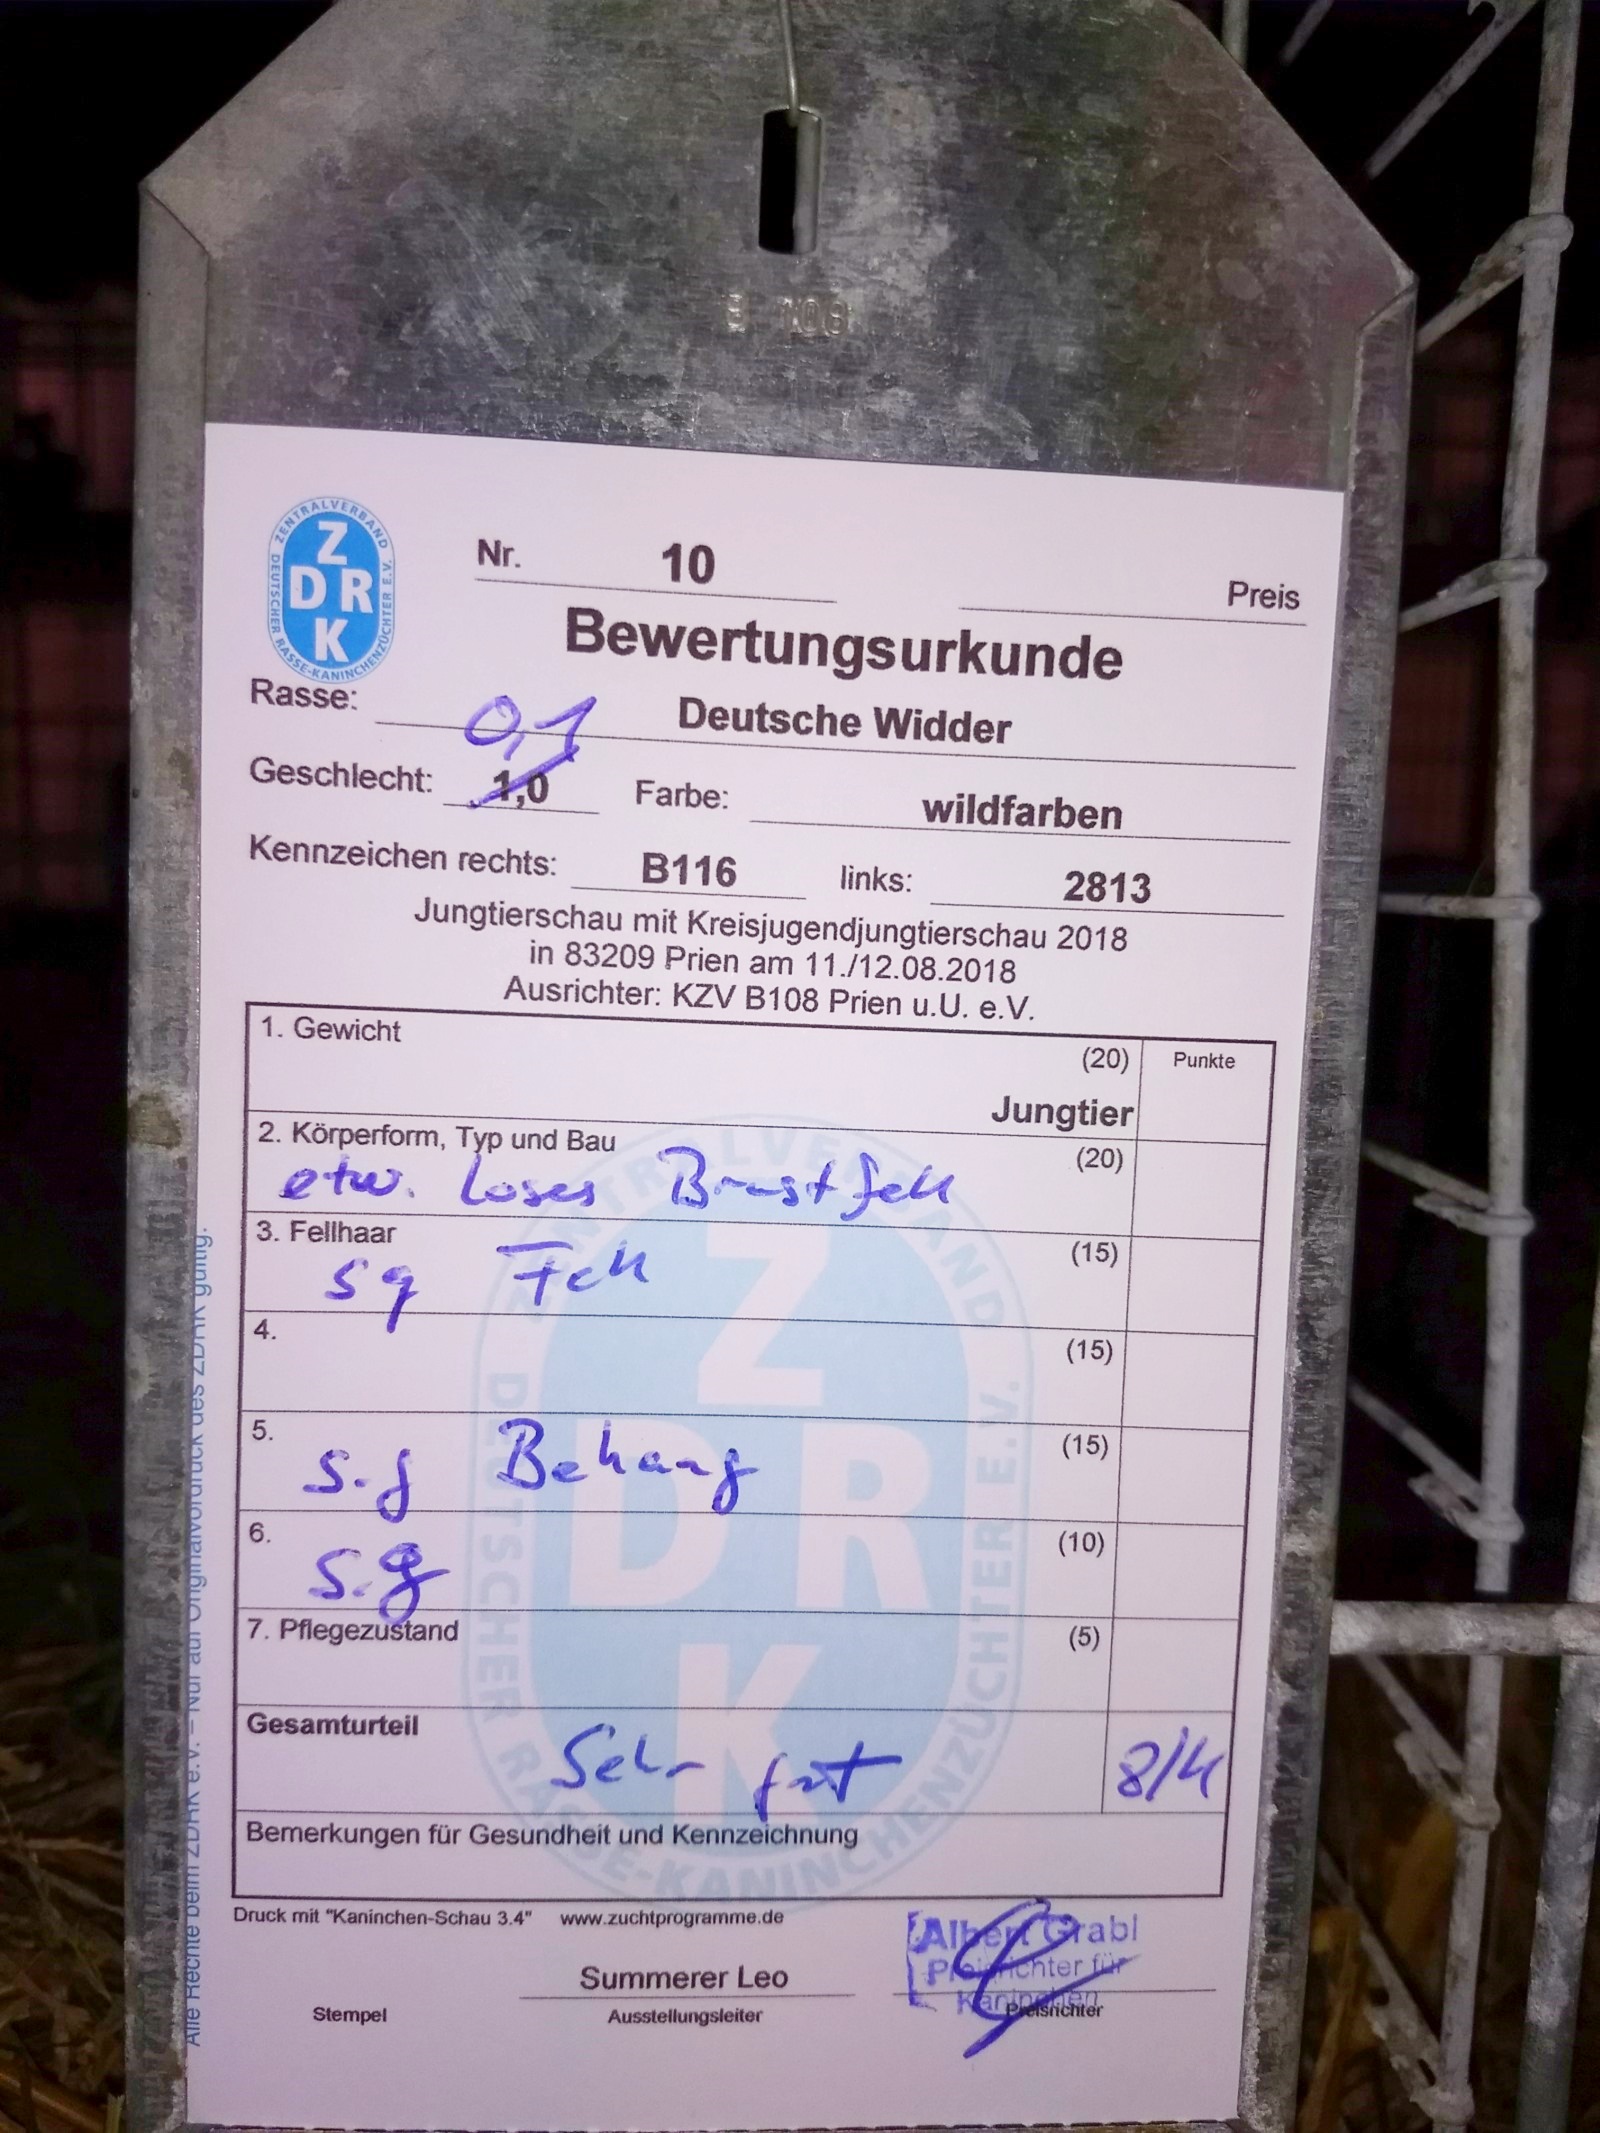 B 108
ZENTRALVERBAND DEUTSCHER RASSE-KANINCHENZÜCHTER E.V.
Z
D R
K
Nr. 10
Preis
Bewertungsurkunde
Rasse: Deutsche Widder
0,1
Geschlecht: 1,0 Farbe: wildfarben
Kennzeichen rechts: B116 links: 2813
Jungtierschau mit Kreisjugendjungtierschau 2018
in 83209 Prien am 11./12.08.2018
Ausrichter: KZV B108 Prien u.U. e.V.
1. Gewicht (20) Punkte
Jungtier
2. Körperform, Typ und Bau (20)
etw. loses Brustfell
3. Fellhaar (15)
sg Fell
4. (15)
5. (15)
s.g Behang
6. (10)
s.g
7. Pflegezustand (5)
Gesamturteil
Sehr gut 8/4
Bemerkungen für Gesundheit und Kennzeichnung
ZENTRALVERBAND DEUTSCHER RASSE-KANINCHENZÜCHTER E.V.
Z
D R
K
Druck mit "Kaninchen-Schau 3.4" www.zuchtprogramme.de
Albert Grabl
Preisrichter für
Kaninchen
Summerer Leo
Stempel Ausstellungsleiter Preisrichter
Alle Rechte beim ZDRK e.V. – Nur auf Originalvordruck des ZDRK gültig.